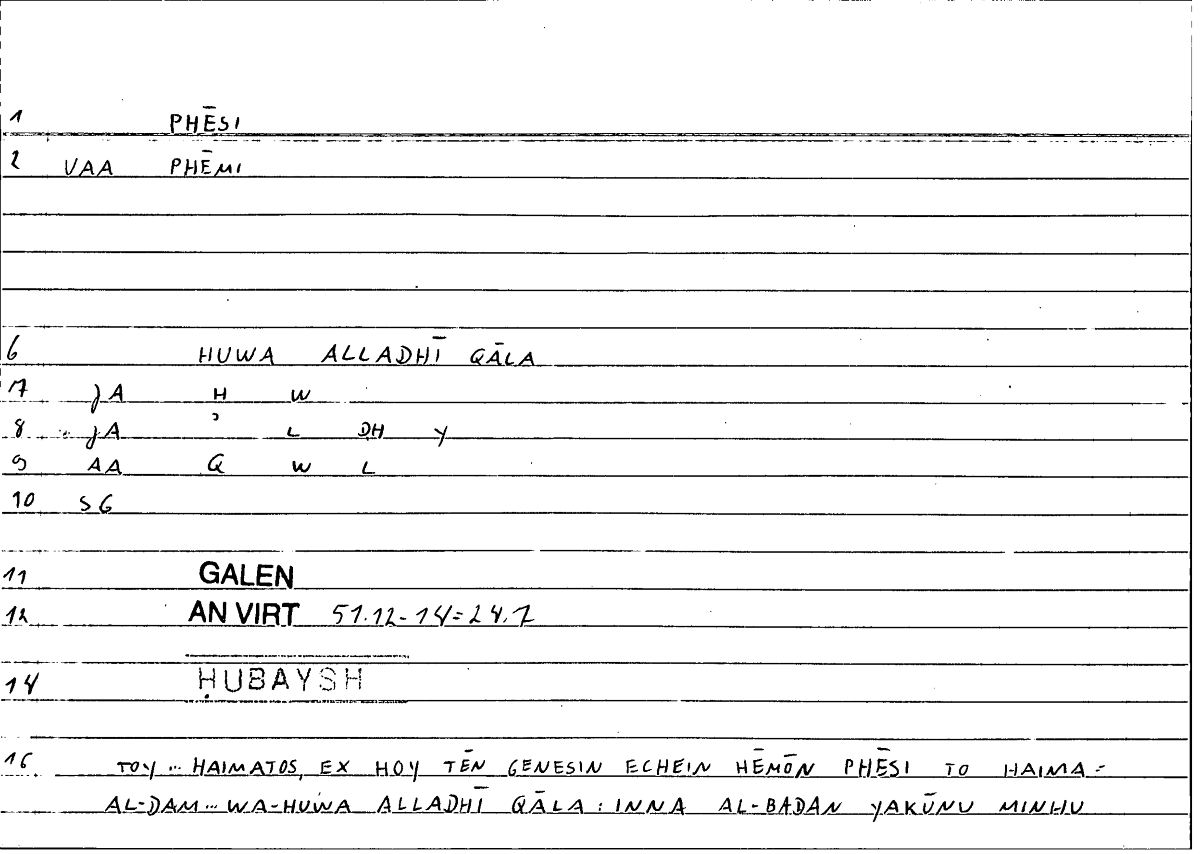 1 PHĒSI
2 VAA PHĒMI
6 HUWA ALLADHĪ QĀLA
7 JA H W
8 JA ʾ L DH Y
9 AA Q W L
10 SG
11 GALEN
12 AN VIRT 51.12-14=24.7
14 ḤUBAYSH
16 TOY ... HAIMATOS, EX HOY TĒN GENESIN ECHEIN HĒMŌN PHĒSI TO HAIMA =
AL-DAM ... WA-HUWA ALLADHĪ QĀLA : INNA AL-BADAN YAKŪNU MINHU